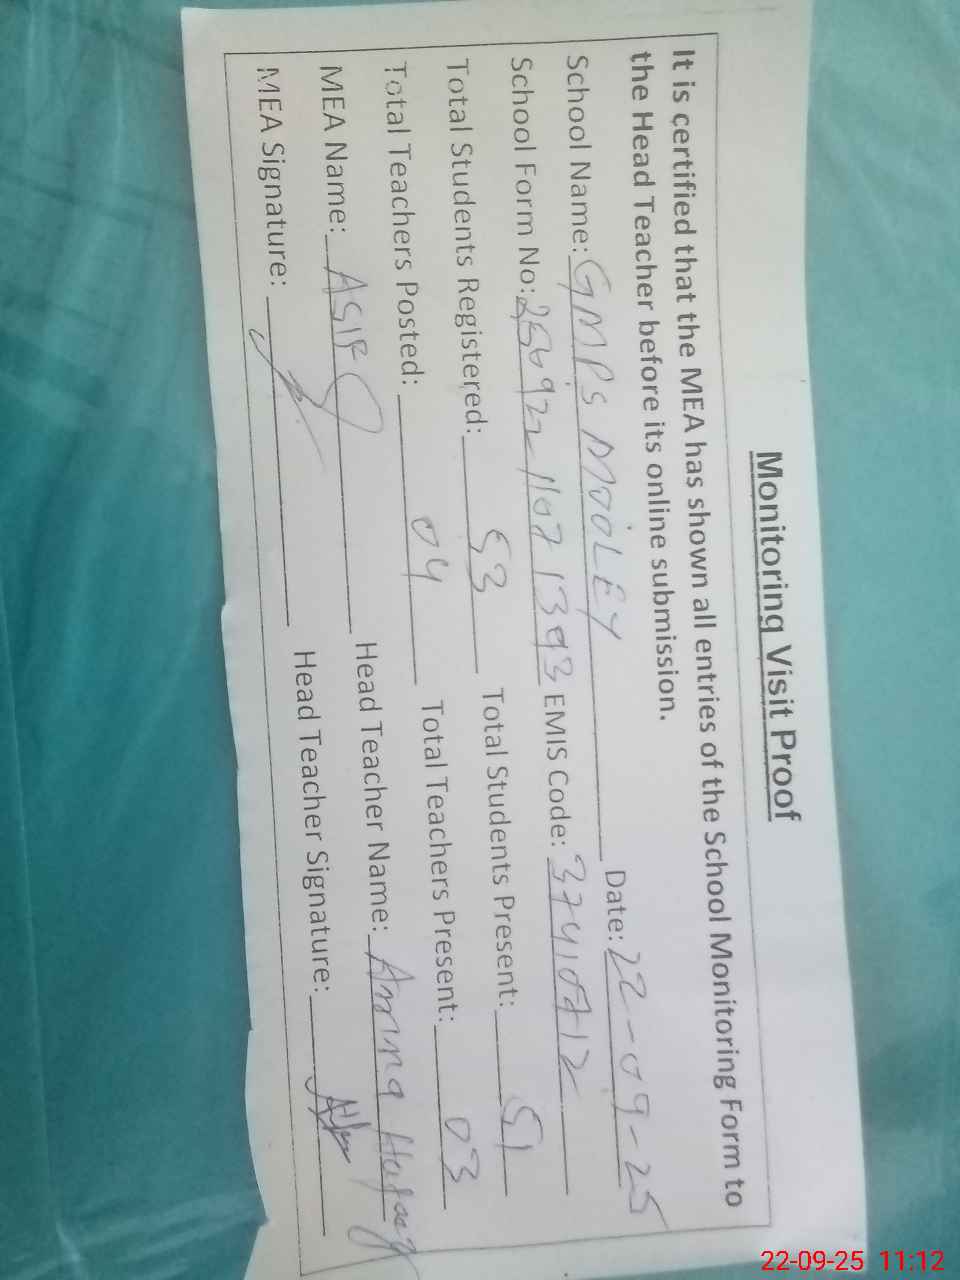 Monitoring Visit Proof
It is certified that the MEA has shown all entries of the School Monitoring Form to
the Head Teacher before its online submission.
School Name: GMPS MOOLEY Date: 22-09-25
School Form No: EMIS Code: 37410712
Total Students Registered: 53 Total Students Present: 51
Total Teachers Posted: 04 Total Teachers Present: 03
MEA Name: ASIF Head Teacher Name: Amina
MEA Signature: Head Teacher Signature:
22-09-25 11:12